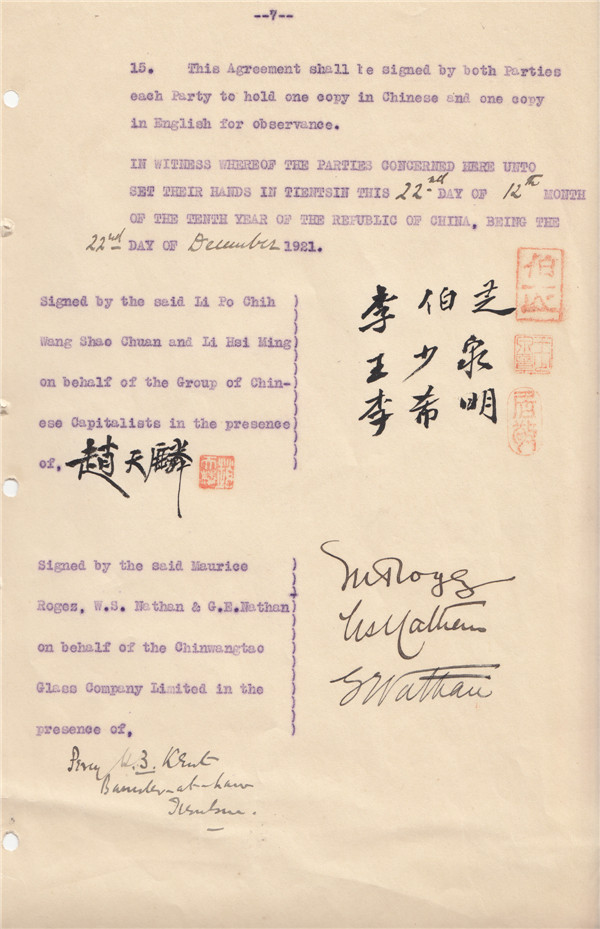 --7--
15. This Agreement shall be signed by both Parties
each Party to hold one copy in Chinese and one copy
in English for observance.
IN WITNESS WHEREOF THE PARTIES CONCERNED HERE UNTO
SET THEIR HANDS IN TIENTSIN THIS 22nd DAY OF 12th MONTH
OF THE TENTH YEAR OF THE REPUBLIC OF CHINA, BEING THE
22nd DAY OF December 1921.
Signed by the said Li Po Chih
Wang Shao Chuan and Li Hsi Ming
on behalf of the Group of Chin-
ese Capitalists in the presence
of, 趙天麟
李伯芝
王少泉
李希明
Signed by the said Maurice
Roges, W.S. Nathan & G.E.Nathan
on behalf of the Chinwangtao
Glass Company Limited in the
presence of,
M Roges
WS Nathan
G Nathan
Percy H.B. Kent
Barrister-at-Law
Tientsin.